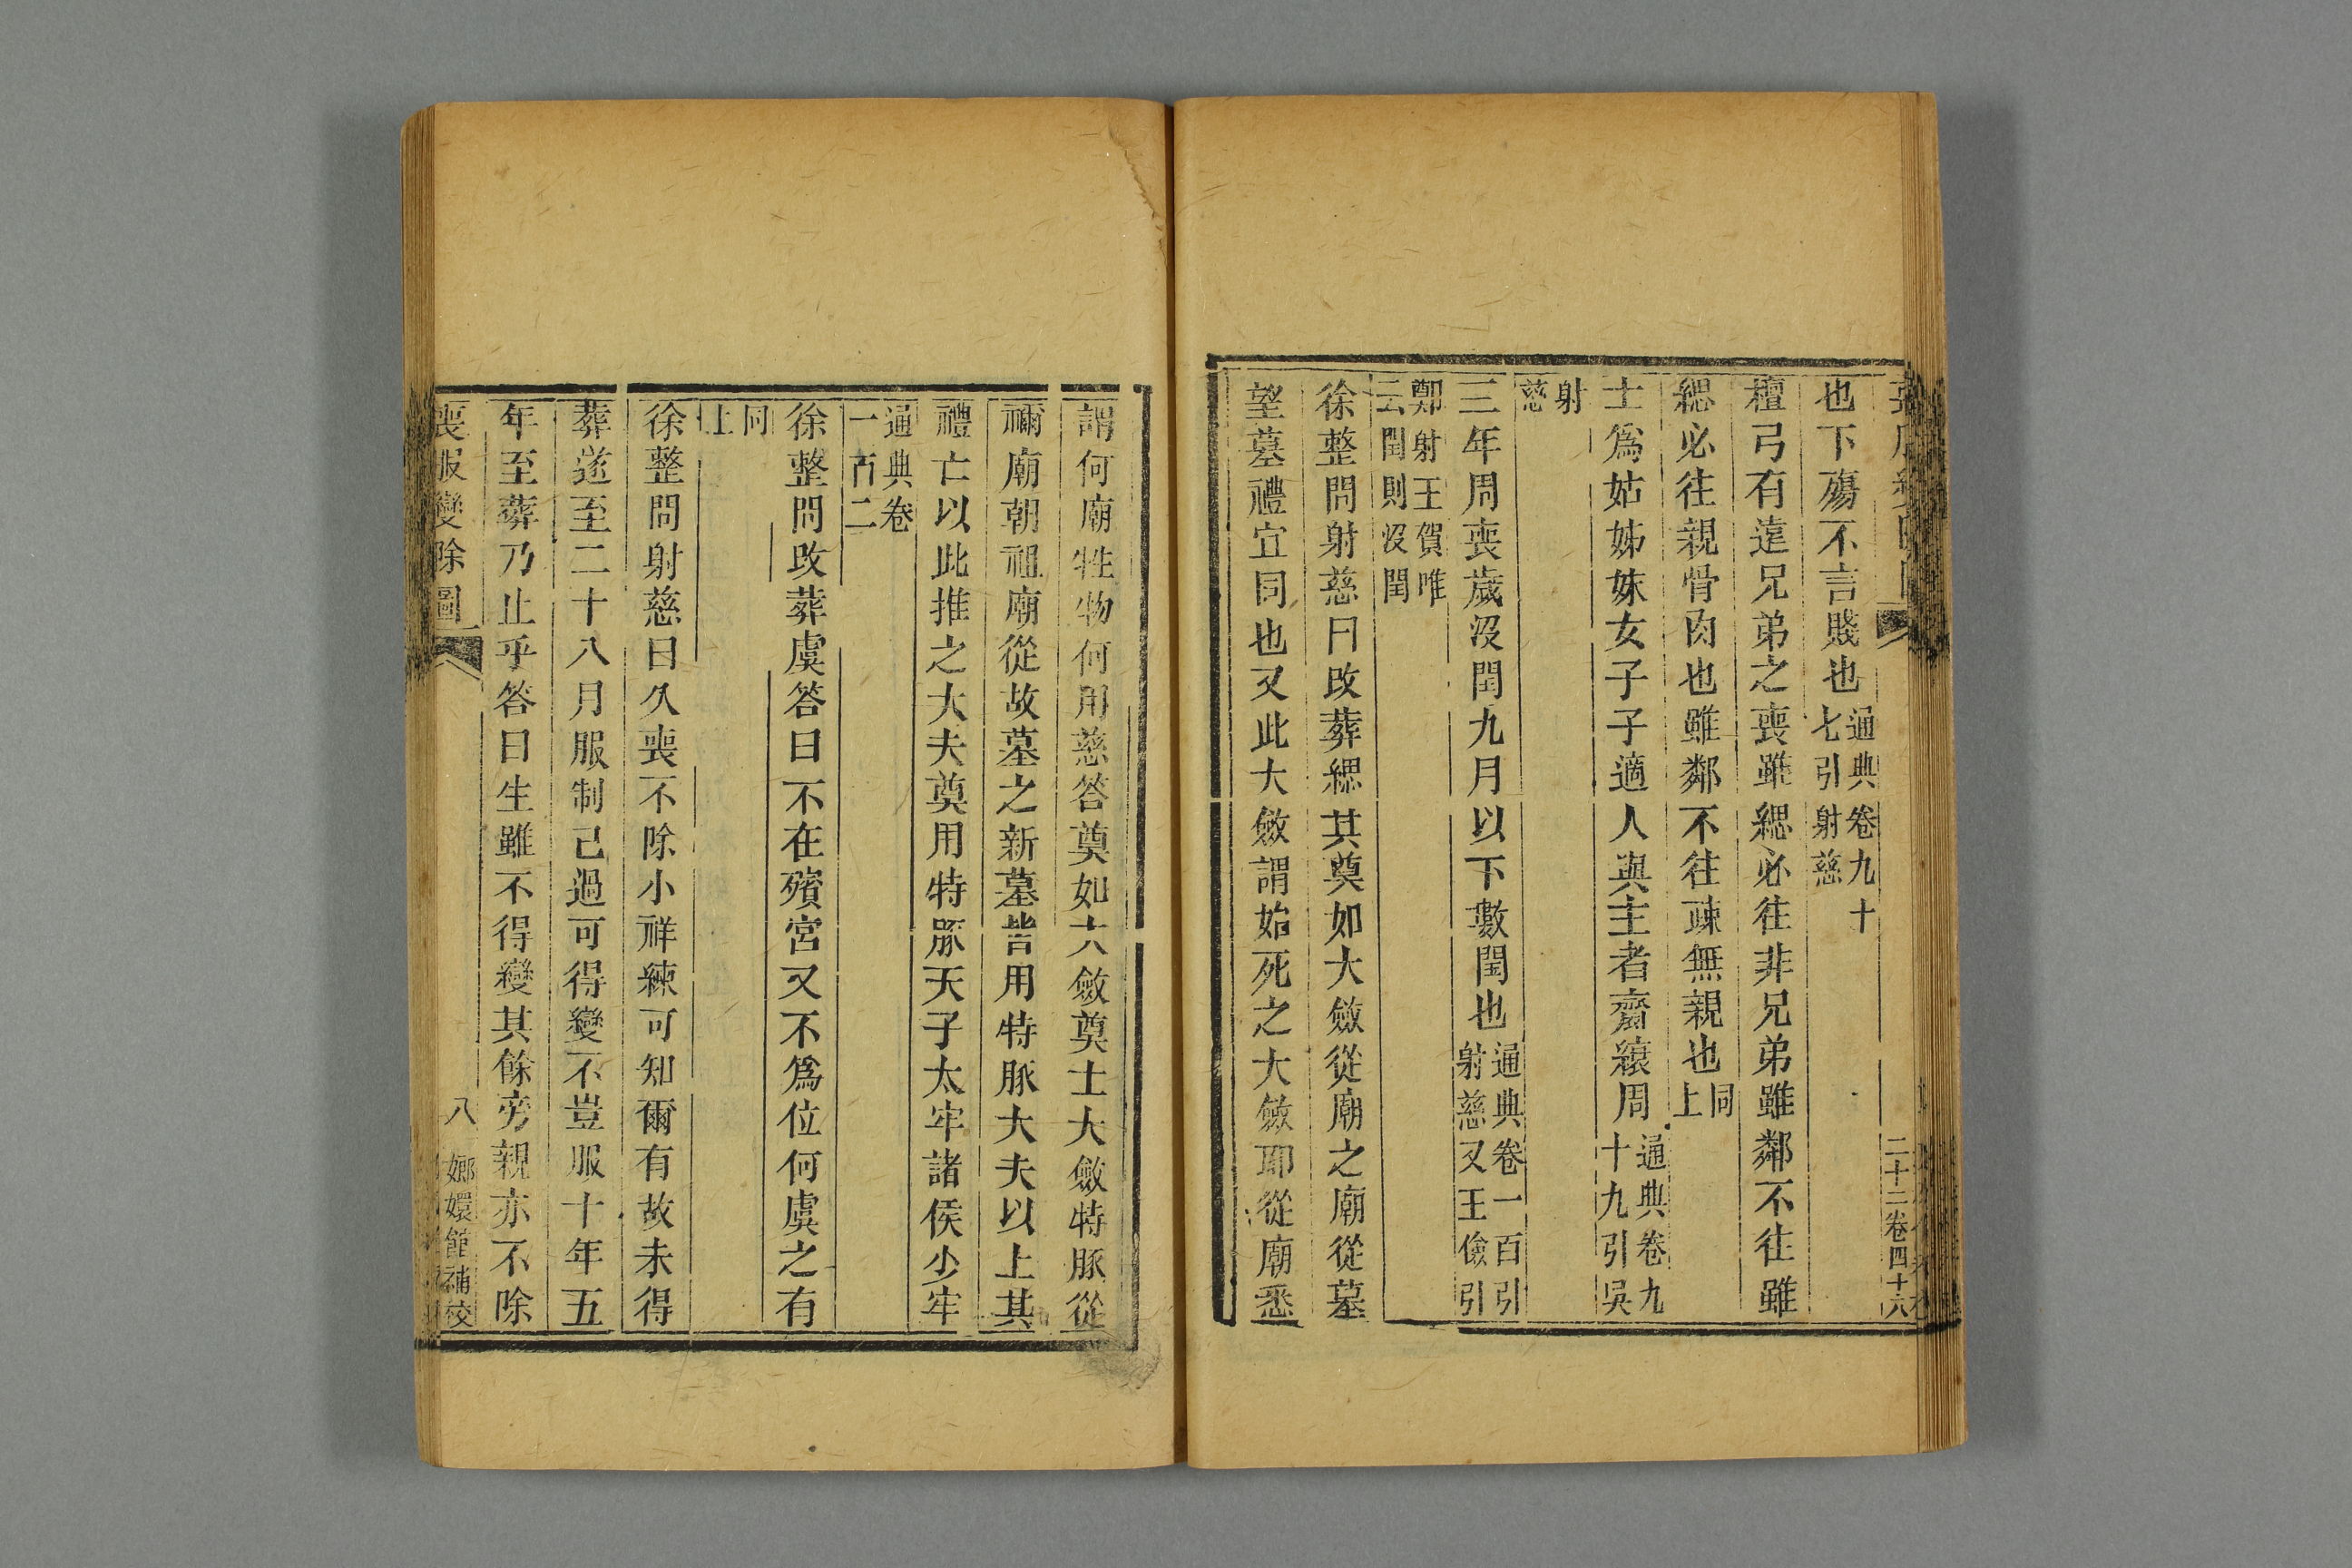 二十二卷四十六
也下殤不言賤也通典卷九十七引射慈
檀弓有遠兄弟之喪雖緦必往非兄弟雖鄰不往雖
緦必往親骨肉也雖鄰不往疎無親也同上
士爲姑姊妹女子子適人與主者齊縗周通典卷九十九引吳
射慈
三年周喪歲沒閏九月以下數閏也通典卷一百引射慈又王儉引
鄭射王賀唯云閏則沒閏
徐整問射慈曰改葬緦其奠如大斂從廟之廟從墓
望墓禮宜同也又此大斂謂如始死之大斂耶從廟悉
謂何廟牲物何用慈答奠如大斂奠士大斂特豚從
禰廟朝祖廟從故墓之新墓皆用特豚大夫以上其
禮亡以此推之大夫奠用特豚天子太牢諸侯少牢
通典卷一百二
徐整問改葬虞答曰不在殯宮又不爲位何虞之有
同上
徐整問射慈曰久喪不除小祥練可知爾有故未得
葬遂至二十八月服制已過可得變不豈服十年五
年至葬乃止乎答曰生雖不得變其餘旁親亦不除
喪服變除圖 八 嫏嬛館補校